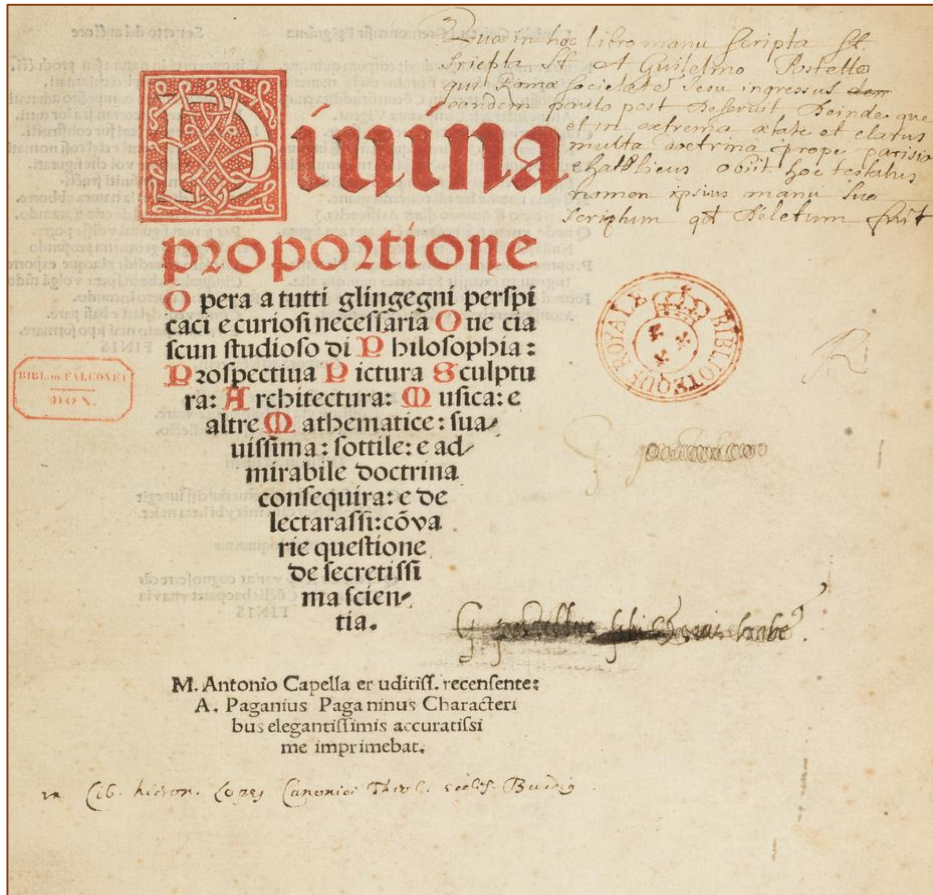 Quae in hoc libro manu scripta st.
scripta st et Guilelmo Postello
qui Romae societatem Jesu ingressus
eandem paulo post deseruit deinde que
et in extrema aetate et clarus
multa doctrina prope
obiit hoc testatus
nomen ipsius manu sua
scriptum qd deletum fuit
Diuina
proportione
Opera a tutti glingegni perspi
caci e curiosi necessaria Oue cia
scun studioso di Philosophia:
Prospectiua Pictura Sculptu
ra: Architectura: Musica: e
altre Mathematice: sua-
uissima: sottile: e ad-
mirabile doctrina
consequira: e de
lectarassi: cōva
rie questione
de secretissi
ma scien-
tia.
BIBLIOTEQUE ROYALE
BIBL. DE FALCONET
DON.
M. Antonio Capella eruditiss. recensente:
A. Paganius Paganinus Characteri
bus elegantissimis accuratissi
me imprimebat.
Lib. hieron. Lopes Canonici Theol.